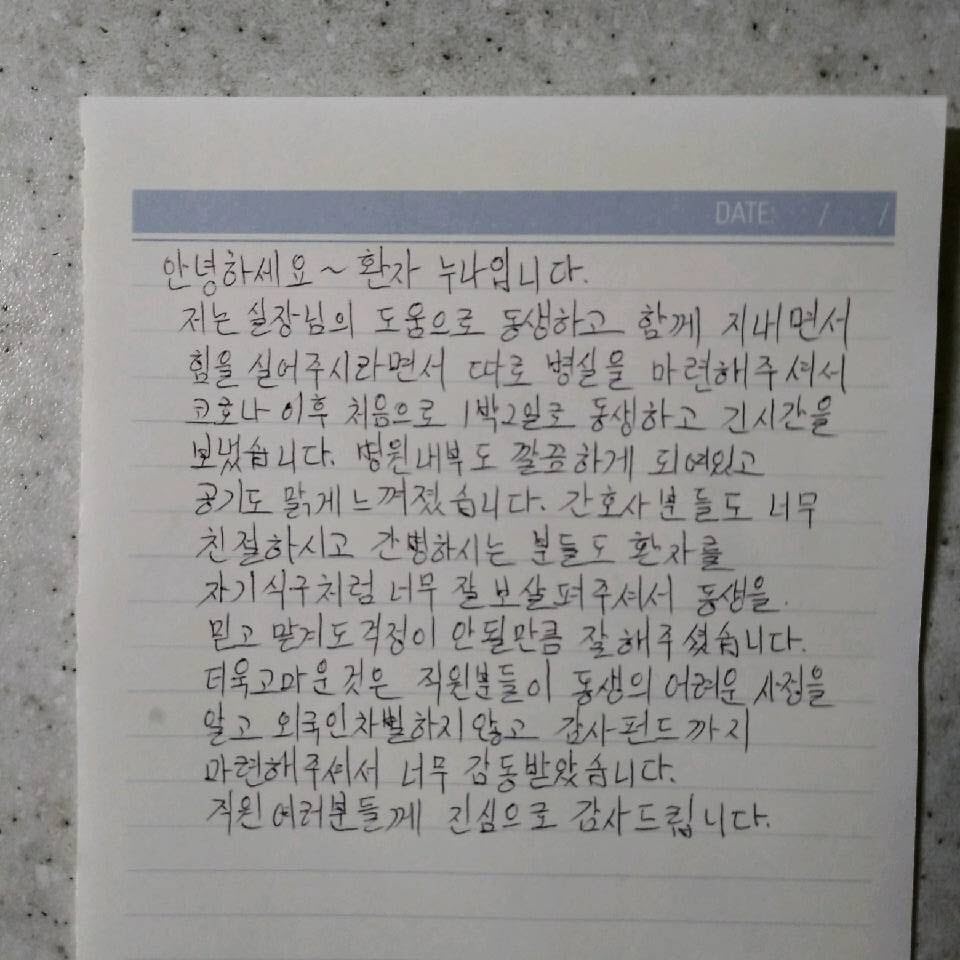 DATE: / /
안녕하세요~ 환자 누나입니다.
저는 실장님의 도움으로 동생하고 함께 지내면서
힘을 실어주시라면서 따로 병실을 마련해주셔서
코로나 이후 처음으로 1박2일로 동생하고 긴시간을
보냈습니다. 병원내부도 깔끔하게 되여있고
공기도 맑게느껴졌습니다. 간호사분들도 너무
친절하시고 간병하시는 분들도 환자를
자기식구처럼 너무 잘 보살펴주셔서 동생을
믿고 맡겨도걱정이 안될만큼 잘해주셨습니다.
더욱고마운것은 직원분들이 동생의 어려운 사정을
알고 외국인차별하지않고 감사펀드까지
마련해주셔서 너무 감동받았습니다.
직원여러분들께 진심으로 감사드립니다.